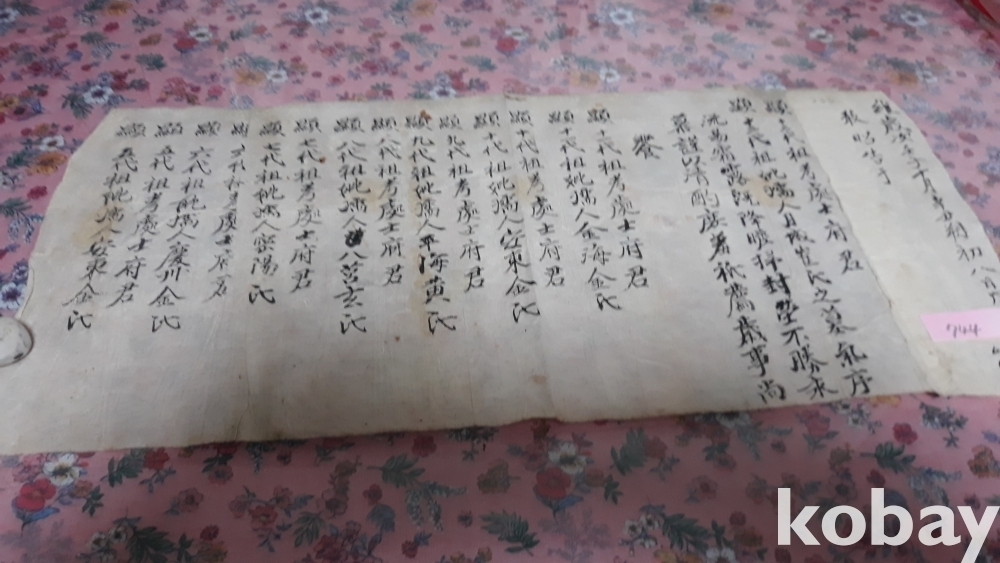 維歲次
十月
初八
敢昭告于
顯十一代祖考處士府君
顯十一代祖妣孺人月城曺氏之墓氣序
流易霜露既降瞻掃封塋不勝永
慕謹以清酌庶羞祇薦歲事尚
饗
顯十代祖考處士府君
顯十代祖妣孺人金海金氏
顯十代祖考處士府君
顯十代祖妣孺人安東金氏
顯九代祖考處士府君
顯九代祖妣孺人平海黃氏
顯八代祖考處士府君
顯八代祖妣孺人八莒玄氏
顯七代祖考處士府君
顯七代祖妣孺人密陽氏
顯六代祖考處士府君
顯六代祖妣孺人慶州金氏
顯五代祖考處士府君
顯五代祖妣孺人安東金氏
744
kobay